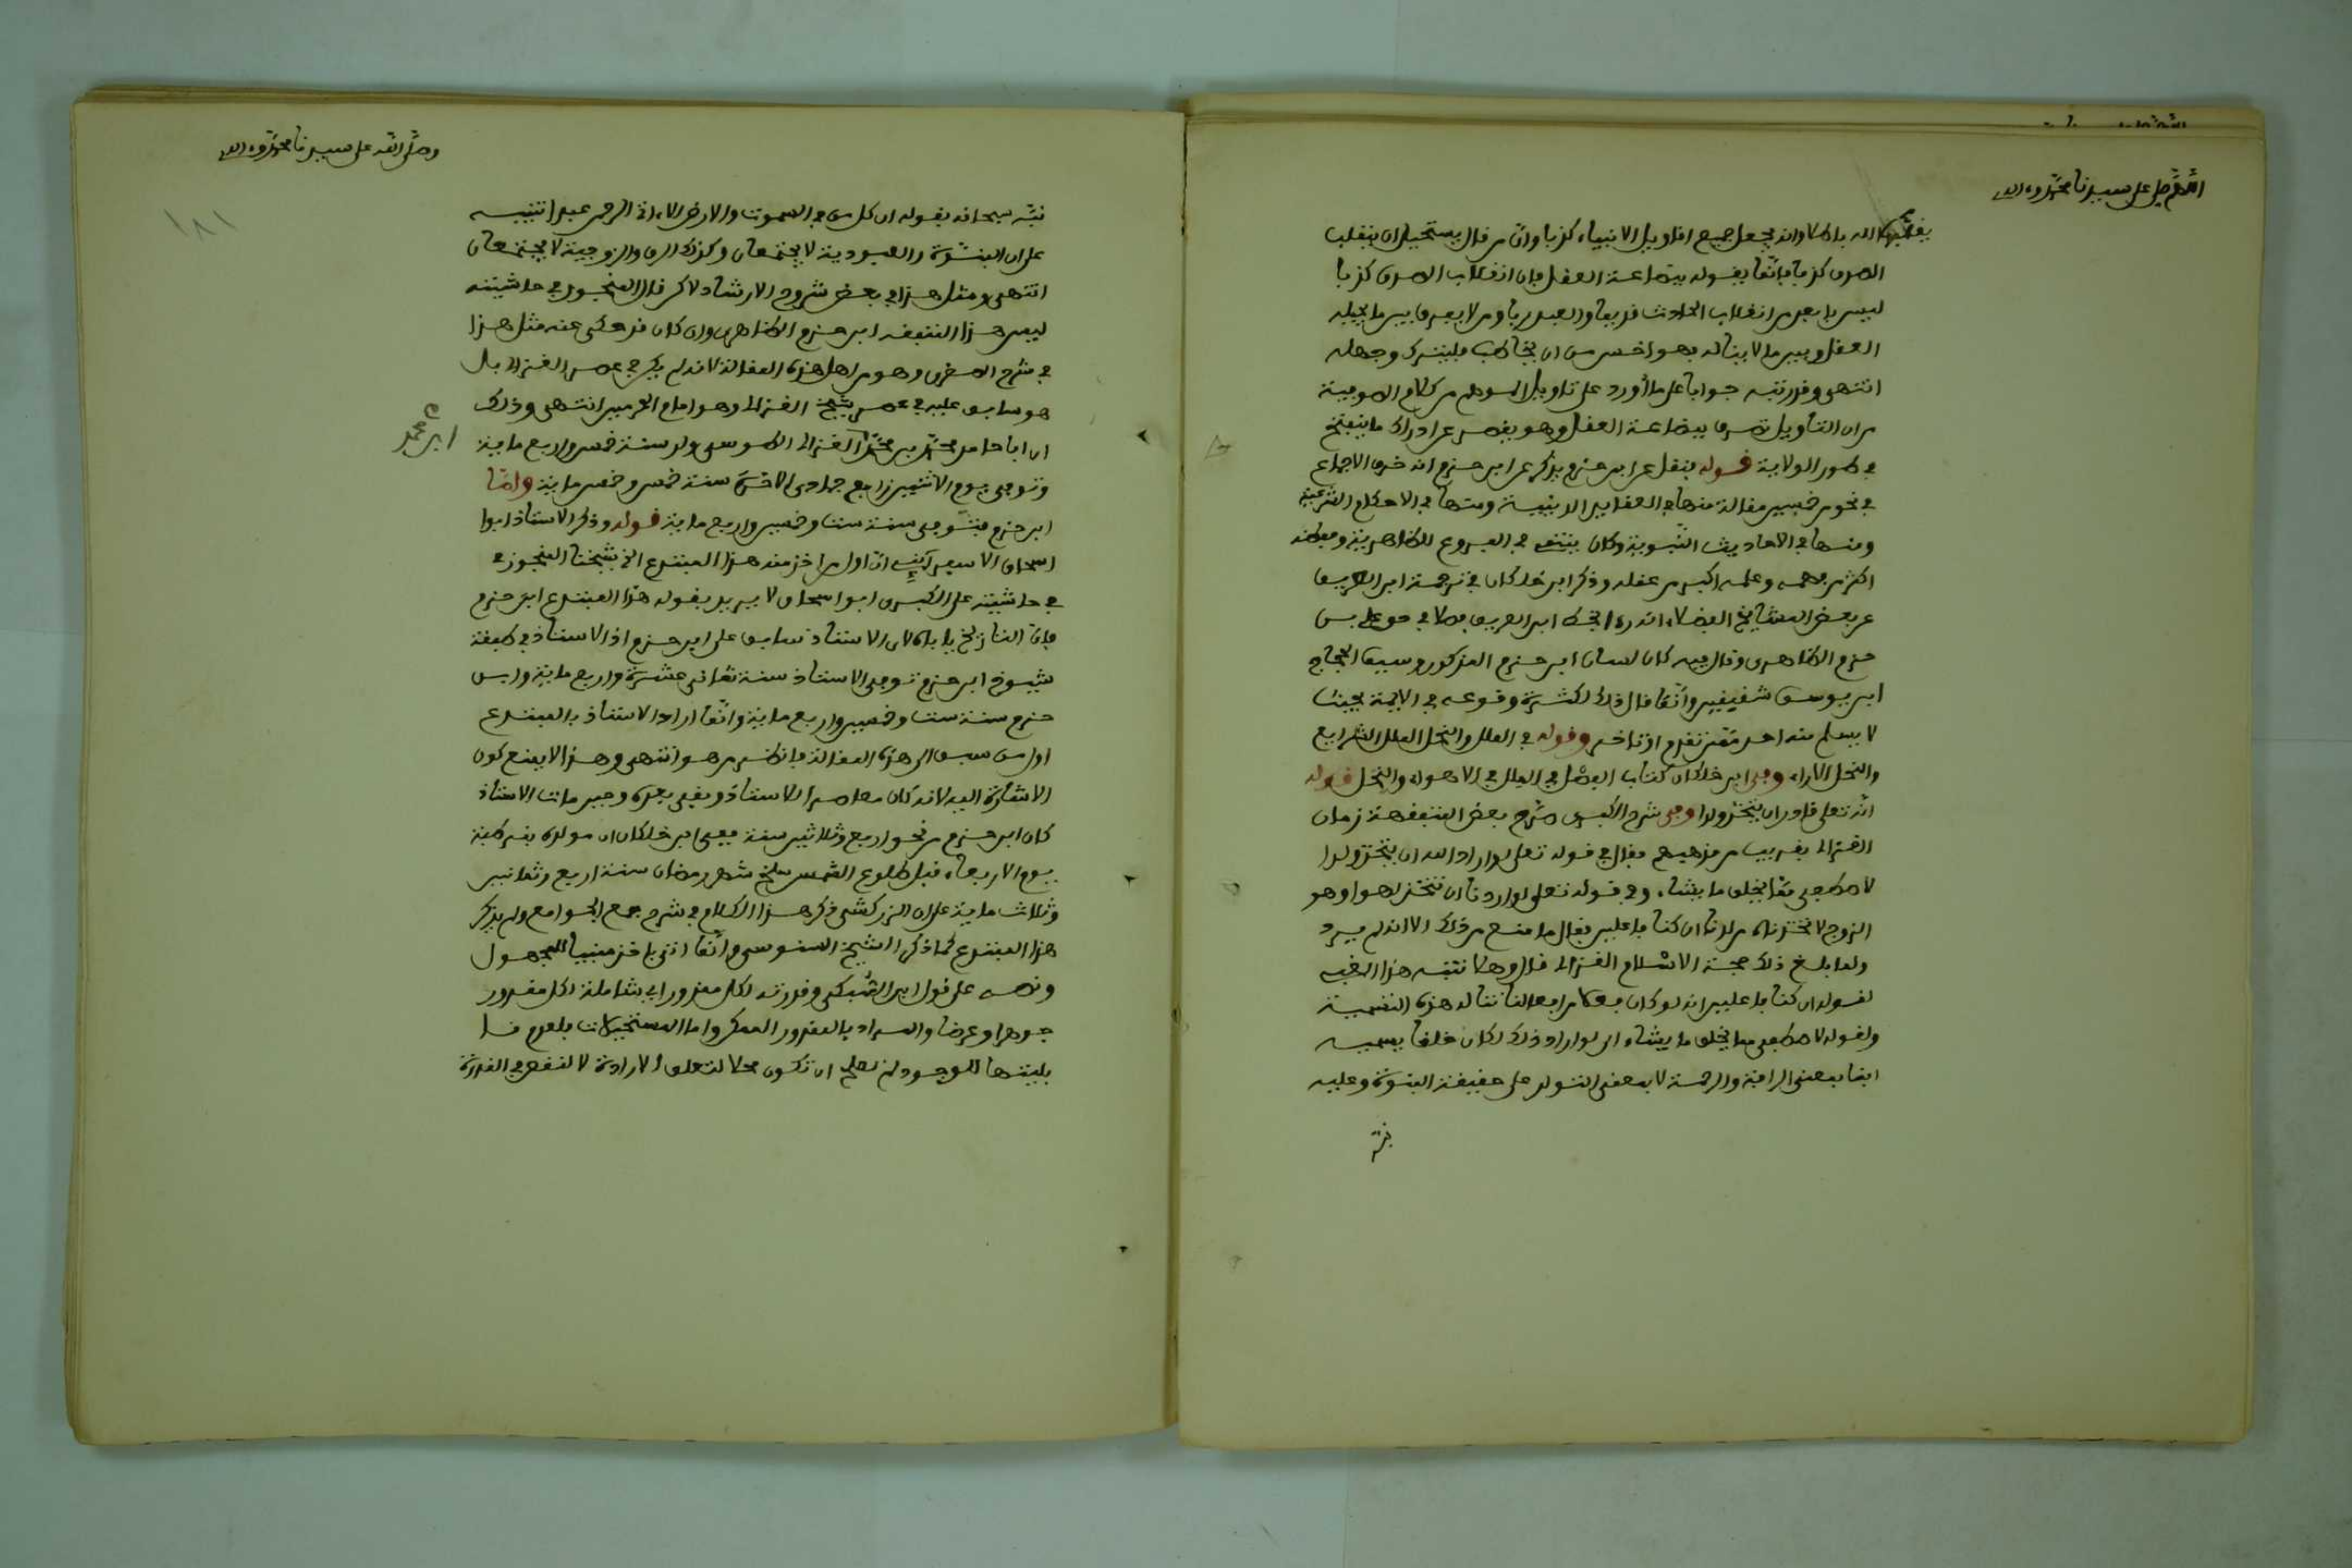 اللهم صل على سيدنا محمد وءاله
الله باطلا وانه يجعل جميع اقاويل الانبياء كذبا وان من قال يستحيل ان ينقلب
الصدق كذبا فانما يقوله ببضاعة العقل فان انقلاب الصدق كذبا
ليس بابعد من انقلاب الحادث قديما والعبد ربا ومن لا يعرف بين ما يحيله
العقل وبين ما لا يناله فهو اخس من ان يخاطب فليترك وجهله
انتهى وقد رتبه جوابا على ما أورد على تاويل الموهم من كلام الصوفية
من ان التاويل تصرف ببضاعة العقل وهو يقصر عن ادراك ما ينفتح
في طور الولاية قوله ينقل عن ابن حزم يذكر عن ابن حزم انه خرق الاجماع
في نحو من خمسين مقالة منها في العقايد الدينية ومنها في الاحكام الشرعية
ومنها في الاحاديث النبوية وكان ينتمى في الفروع للظاهرية وحفظه
اكثر من فهمه وعلمه اكبر من عقله وذكر ابن خلكان في ترجمة ابن العريف
عن بعض المشايخ الفضلاء انه رءا بخط ابن العريف فصلا في حق على بن
حزم الظاهرى وقال فيه كان لسان ابن حزم المذكور وسيف الحجاج
ابن يوسف شقيقين وانما قال ذلك لكثرة وقوعه في الايمة بحيث
لا يسلم منه احد ممن تقدم او تاخر وقوله في الملل والنحل الملل الشرايع
والنحل الاراء وفى ابن خلكان كتاب الفصل في الملل في الاهواء والنحل قوله
انه تعلى قادر ان يتخذ ولدا وفى شرح الكبرى صرح بعض المتفقهة زمان
الغزالى بقريب من مذهبهم فقال في قوله تعلى لو اراد الله ان يتخذ ولدا
لاصطفى مما يخلق ما يشاء وفى قوله تعلى لو اردنا ان نتخذ لهوا وهو
الزوج لاتخذناه من لدنا ان كنا فاعلين فقال ما منع من ذلك الا انه لم يرد
ولما بلغ ذلك حجة الاسلام الغزالى قال وهلا تنبه هذا الغبى
لقوله ان كنا فاعلين انه لو كان فعلا من افعالنا تناله هذه التسمية
ولقوله لاصطفى مما يخلق ما يشاء اى لو اراد ذلك لكان خلقا يسميه
ابنا بمعنى الرافة والرحمة لا بمعنى التولد على حقيقة البنوة وعليه
نبّه
وصلى الله على سيدنا محمد وءاله
١٨١
نبّه سبحانه بقوله ان كل من في السموت والارض الا ءاتى الرحمن عبدا تنبيه
على ان البنوة والعبودية لا يجتمعان وكذلك الرق والزوجية لا يجتمعان
انتهى ومثل هذا في بعض شروح الارشاد لاكن قال المنجور في حاشيته
ليس هذا المتفقه ابن حزم الظاهرى وان كان قد حكى عنه مثل هذا
في شرح الصغرى وهو من اهل هذه المقالة لانه لم يكن في عصر الغزالى بل
هو سابق عليه في عصر شيخ الغزالى وهو امام الحرمين انتهى وذلك
ان ابا حامد محمد بن محمد الغزالى الطوسى ولد سنة خمس واربع ماية
ابن محمد
وتوفى يوم الاثنين رابع جمادى الاخرى سنة خمس وخمس ماية واما
ابن حزم فتوفى سنة ست وخمسين واربع ماية قوله وذكر الاستاذ ابوا
اسحاق الاسفراينى ان اول من اخذ منه هذا المبتدع الخ شيخنا المنجور في
في حاشيته على الكبرى ابوا اسحاق لا يريد بقوله هذا المبتدع ابن حزم
فان التاريخ ياباه لان الاستاذ سابق على ابن حزم اذ الاستاذ في طبقة
شيوخ ابن حزم توفى الاستاذ سنة ثمانى عشرة واربع ماية وابن
حزم سنة ست وخمسين واربع ماية وانما اراد الاستاذ بالمبتدع
اول من سبق الى هذه المقالة فانظر من هو انتهى وهذا لا يمنع كون
الاشارة اليه لانه كان معاصرا للاستاذ وبقى بعده وحين مات الاستاذ
كان ابن حزم من نحو اربع وثلاثين سنة ففى ابن خلكان ان مولده بقرطبة
يوم الاربعاء قبل طلوع الشمس سلخ شهر رمضان سنة اربع وثمانين
وثلاث ماية على ان الزركشى ذكر هذا الكلام في شرح جمع الجوامع ولم يذكر
هذا المبتدع كما ذكر الشيخ السنوسى وانما اتى باخذ مبنيا للمجهول
ونصه على قول ابن السبكى وقدرته لكل مقدور اى شاملة لكل مقدور
جوهرا وعرضا والمراد بالمقدور الممكن واما المستحيلات فلعدم
قابليتها للوجود لم تصلح ان تكون محلا لتعلق الارادة لا لنقص في القدرة